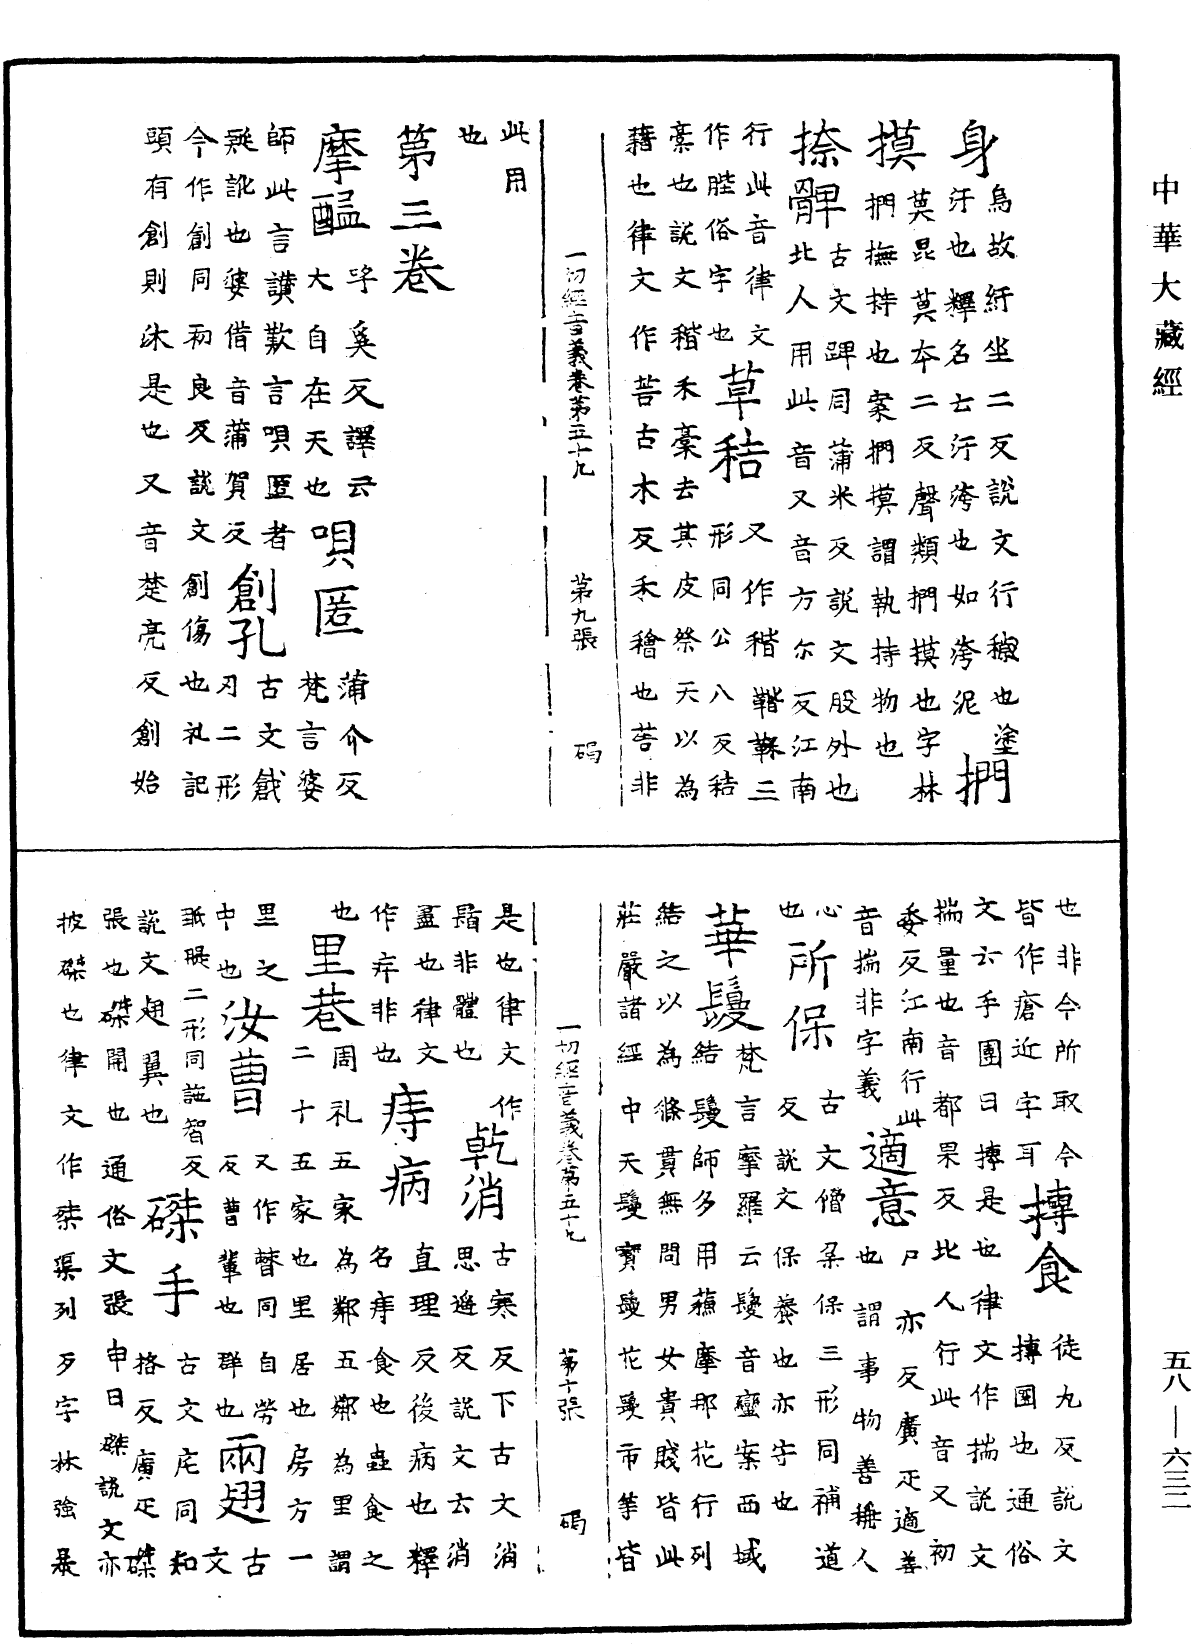 中華大藏經
身
烏故紆坐二反說文行穢也塗
汙也釋名云汙洿也如洿泥
捫摸
莫昆莫本二反聲類捫摸也字林
捫撫持也案捫摸謂執持物也
捺髀
古文踝同蒲米反說文股外也
北人用此音又音方尔反江南
行此音律文
作䏶俗字也
草秸
又作稭鞂䅥三
形同公八反秸
稾也說文稭禾稾去其皮祭天以為
藉也律文作䓘古木反禾穡也䓘非
一切經音義卷第五十九 第九張 碣
此用
也
第三卷
摩醯
呼奚反譯云
大自在天也
唄匿
蒲介反
梵言婆
師此言讚歎言唄匿者
訛也婆借音蒲賀反
創孔
古文戧
刃二形
今作創同初良反說文創傷也礼記
頭有創則沐是也又音楚亮反創始
也非今所取今
皆作瘡近字耳
摶食
徒丸反說文
摶圜也通俗
文云手團曰摶是也律文作揣說文
揣量也音都果反北人行此音又初
委反江南行此
音揣非字義
適意
尸亦反廣疋適善
也謂事物善稱人
心
所保
古文㑄䒐保三形同補道
反說文保養也亦守也
也
華鬘
梵言摩羅云鬘音蠻案西域
結鬘師多用蘇摩那花行列
結之以為條貫無問男女貴賤皆此
莊嚴諸經中天鬘寶鬘花鬘市等皆
一切經音義卷第五十九 第十張 碣
是也律文作
㵐非體也
乾消
古寒反下古文消
思遙反說文云消
盡也律文
作疛非也
痔病
直理反後病也釋
名痔食也蟲食之
也
里巷
周礼五家為鄰五鄰為里謂
二十五家也里居也房方一
里之
中也
汝曹
又作㬳同自勞
反曹輩也群也
兩翅
古文
䎝䎜二形同施智反
說文翅翼也
磔手
古文厇同知
格反廣疋磔
張也磔開也通俗文張申曰磔說文亦
披磔也律文作桀渠列反字林強暴
五八—六三二